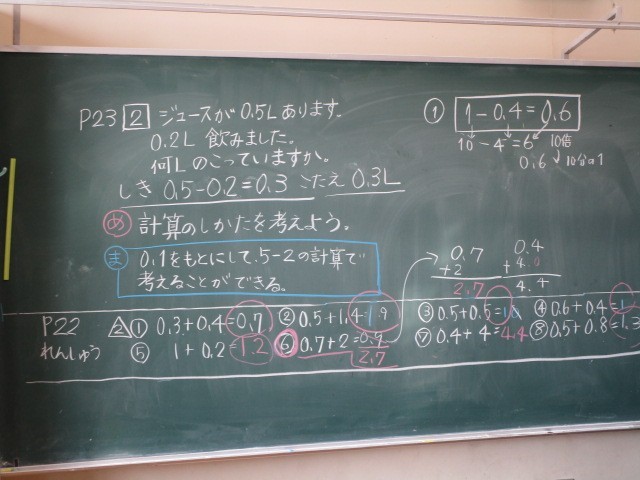 P23 2 ジュースが0.5Lあります。
0.2L 飲みました。
何Lのこっていますか。
しき 0.5-0.2=0.3 こたえ 0.3L
め 計算のしかたを考えよう。
ま 0.1をもとにして、5-2の計算で
考えることができる。
① 1-0.4=0.6
10-4=6 10倍
0.6 10分の1
0.7
+2
2.7
0.4
+4.0
4.4
P22
れんしゅう
2 ① 0.3+0.4=0.7 ② 0.5+1.4=1.9 ③ 0.5+0.5=1 ④ 0.6+0.4=1
⑤ 1+0.2=1.2 ⑥ 0.7+2=0.9 ⑦ 0.4+4=4.4 ⑧ 0.5+0.8=1.3
2.7